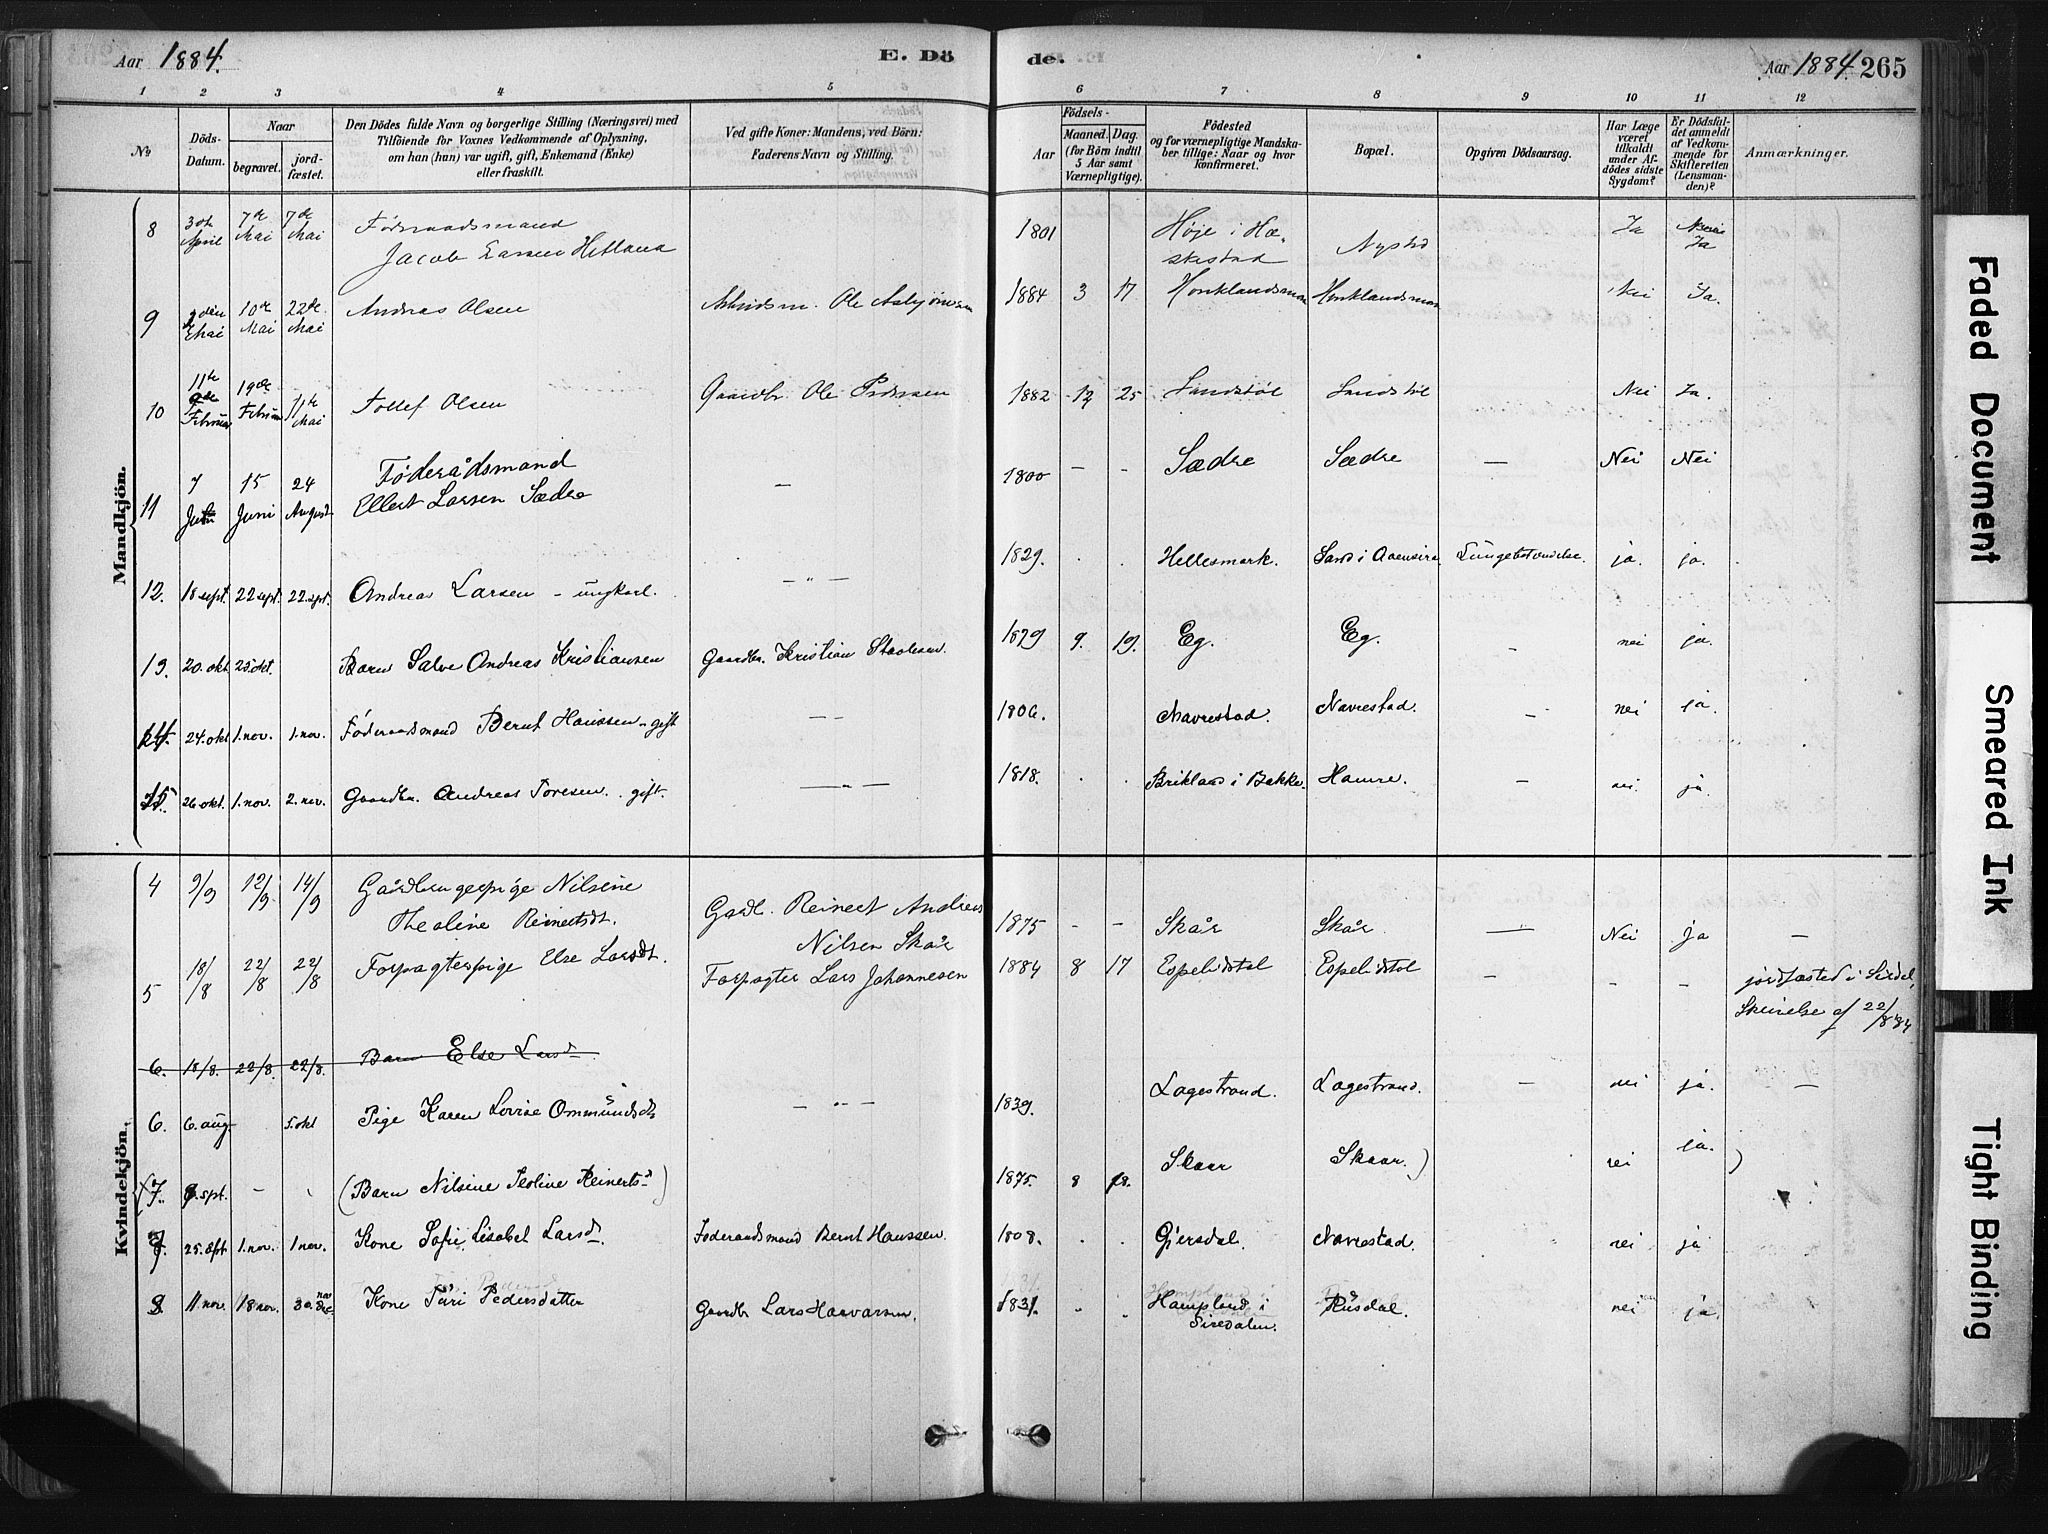 Aar 1884. E. Dö
de. Aar 1884. 265
1 2 3 4 5 6 7 8 9 10 11 12
№
Döds-Datum.
Naar
begravet.
jord-fæstet.
Den Dödes fulde Navn og borgerlige Stilling (Næringsvei) med
Tilföiende for Voxnes Vedkommende af Oplysning,
om han (hun) var ugift, gift, Enkemand (Enke)
eller fraskilt.
Ved gifte Koner: Mandens, ved Börn:
Faderens Navn og Stilling.
Födsels-
Aar
Maaned. Dag.
(for Börn indtil
5 Aar samt
Værnepligtige).
Födested
og for værnepligtige Mandska-
ber tillige: Naar og hvor
konfirmeret.
Bopæl.
Opgiven Dödsaarsag.
Har Læge
været
tilkaldt
under Af-
dödes sidste
Sygdom?
Er Dödsfal-
det anmeldt
af Vedkom-
mende for
Skifteretten
(Lensman-
den)?
Anmærkninger.
Mandkjön.
8 April 7de Mai 7de Mai Jacob Larsen 1801 Høje i Hæ-
skestad Nystad Ja Ja
9 Mai 10de Mai 22de Mai Andreas Olsen Ole Asbjørnsen 1884 3 17 Nei Ja.
10 11te Februar 19de Februar 11te Mai Tollef Olsen Gaardbr. Ole Pedersen 1882 12 25 Sandstøl Sandstøl Nei Ja.
11 7 15 Juni 24 August Føderådsmand
Ellert Larsen Sædre — 1800 — - Sædre Sædre — Nei Nei
12. 18 sept. 22 sept. 22. sept. Andreas Larsen - ungkarl. — " — 1829. . . Hellesmark. Sand i Aaensire Lungebetændelse. ja. ja.
13. 20. okt. 25. okt. Barn Salve Andreas Kristiansen Gaardbr. Kristian Staalesen. 1879 9. 19. Eg. Eg. nei ja.
14. 24. okt. 1. nov. 1. nov. Føderaadsmand Bernt Hanssen - gift — — 1806. Navrestad. Navrestad. - nei ja.
15. 26 okt. 1. nov. 2. nov. Gaardbr. Andreas Toresen. . gift. — " — 1818. . . Brikland i Bakke. Hamre. - nei. ja.
Kvindekjön.
4 9/9 12/9 14/9 Gårdbrugerpige Nilsine
Theoline Reinertsdt. Gårdb. Reinert Andreas
Nilsen Skår 1875 - - Skår Skår — Nei Ja —
5 18/8 22/8 22/8 Forpagterpige Else Larsdt. Forpagter Lars Johannesen 1884 8 17 Espelidstøl Espelidstøl - - - jordfæsted i Siredal,
Skrivelse af 22/8 84
6. 18/8. 22/8. 22/8. Barn Else Larsd.
6. 6. aug. 5. okt Pige Karen Lovise Ommundsdt. — " — 1839. Lagestrand. Lagestrand. — nei ja. —
(7. sept. - (Barn Nilsine Teoline Reinertsd.) 1875. 8 18. Skaar Skaar.) nei ja. )
7. 25. sept. 1. nov. 1 nov. Kone Sofie Lisabet Larsd. Føderaadsmand Bernt Hanssen. 1808. . . Gjersdal. Navrestad. nei ja
8 11. nov. 18 nov. 30. nov. Kone Turi Pedersdatter Gaardbr Lars Haavarsen. 1831. . . Hompland i
Siredalen. Rusdal. nei ja.
Faded Document
Smeared Ink
Tight Binding